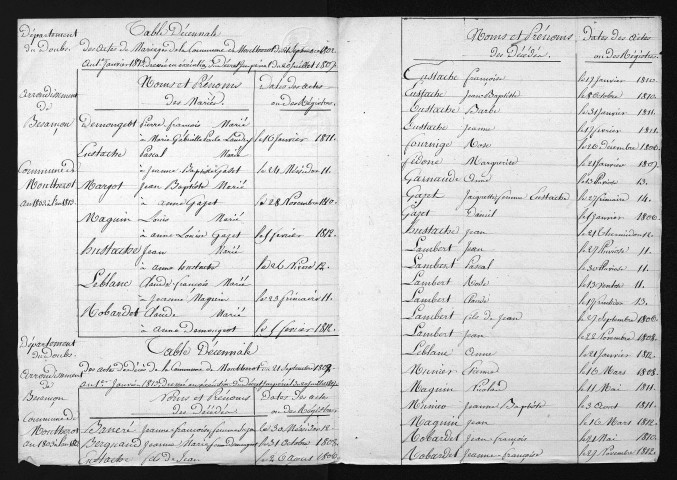 Département
du Doubs.
Arrondissement
de
Besançon
Commune de
Montherot
an 1803 à l'an 1813.
Table Décennale
des Actes de Mariage de la Commune de Montherot du 21 Septembre 1802
au 1er Janvier 1813 Dressée en exécution du Décret Impérial du 20 Juillet 1807.
Noms et Prénoms
des Mariés.
Dates des actes
ou des Régistres.
Demongeot Pierre françois Marié
à Marie Gabrielle Paule Landry le 16 Janvier 1811.
Eustache Pascal Marié
à Jeanne Baptiste Gaset le 24 Messidor 11.
Margot Jean Baptiste Marié
à anne Gaset le 28 Novembre 1810.
Maguin Louis Marié
à anne Louise Gaset le février 1812.
Eustache Jean Marié
à anne Eustache le 26 12.
Leblanc Claude françois Marié
à Jeanne Maguin le 23 frimaire 11.
Robardet Claude Marié
à Anne Demongeot le février 1812.
Département
du Doubs.
Arrondissement
de
Besançon
Commune
de Montherot
an 1803 à l'an 1813
Table Décennale
des actes de décès de la Commune de Montherot du 21 Septembre 1802
au 1er Janvier 1813 Dressée en exécution du Décret Impérial
Noms et Prénoms
des Décédés
Dates des actes
ou des Régistres
Jeanne françoise femme le 30 12.
Jeanne Marie le 31 Octobre 1808.
Eustache fils de Jean le 26 Aout 1806.
Noms et Prénoms
des Décédés.
Dates des Actes
ou des Régistres
Eustache françoise le 19 Janvier 1810.
Eustache Jean Baptiste le Octobre 1810.
Eustache Barbe le 31 Janvier 1811.
Eustache Jeanne le 17 février 1811.
Rose le 26 Décembre 1806.
Marguerite le 21 Janvier 1807.
Anne le 13.
Gaset Jaquette femme Eustache le 27 frimaire 14.
Gaset Daniel le 1 Janvier 1806.
Eustache Jean le 21 12.
Lambert Jean le 29 Pluviose 11.
Lambert Pascal le 30 Pluviose 11.
Lambert Rose le 13 Ventose 11.
Lambert Claude le 13.
Lambert fils de Jean le 29 Septembre 1806.
Lambert Jean le 22 Novembre 1808.
Leblanc Anne le 21 Janvier 1812.
Munier Etienne le 16 Mars 1808.
Maguin Nicolas le 11 Mai 1811.
Munier Jeanne Baptiste le 3 Aout 1811.
Maguin Jean le 16 Mars 1812.
Robardet Jean françois le Mai 1810.
Robardet Jeanne françoise le 29 Novembre 1812.